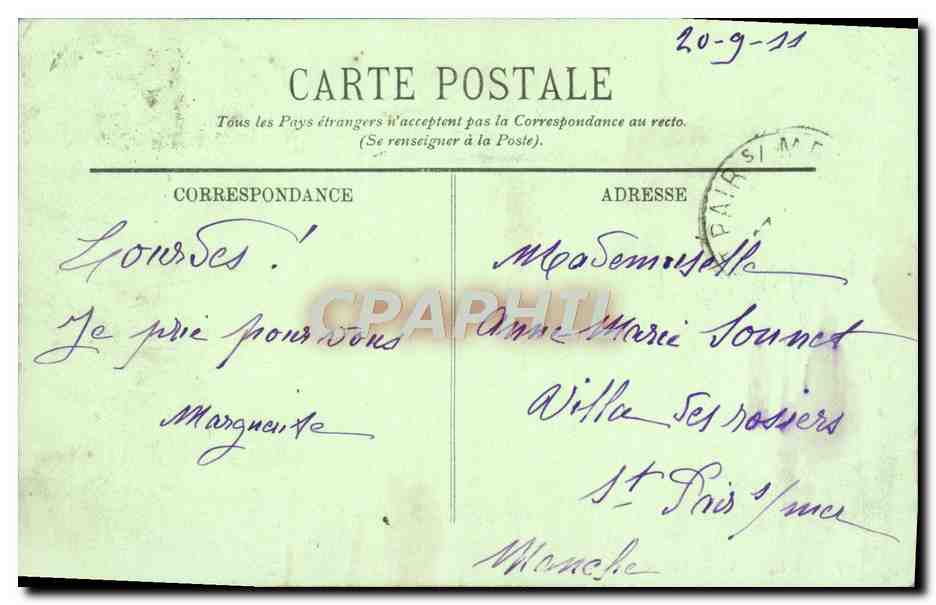 20-9-11
CARTE POSTALE
Tous les Pays étrangers n'acceptent pas la Correspondance au recto.
(Se renseigner à la Poste).
CORRESPONDANCE
Lourdes !
Je prie pour vous
Marguerite
ADRESSE
PAIR S/ ME
Mademoiselle
Anne Marie Sonnet
Villa des rosiers
St Pair s/mer
Manche
CPAPHIL